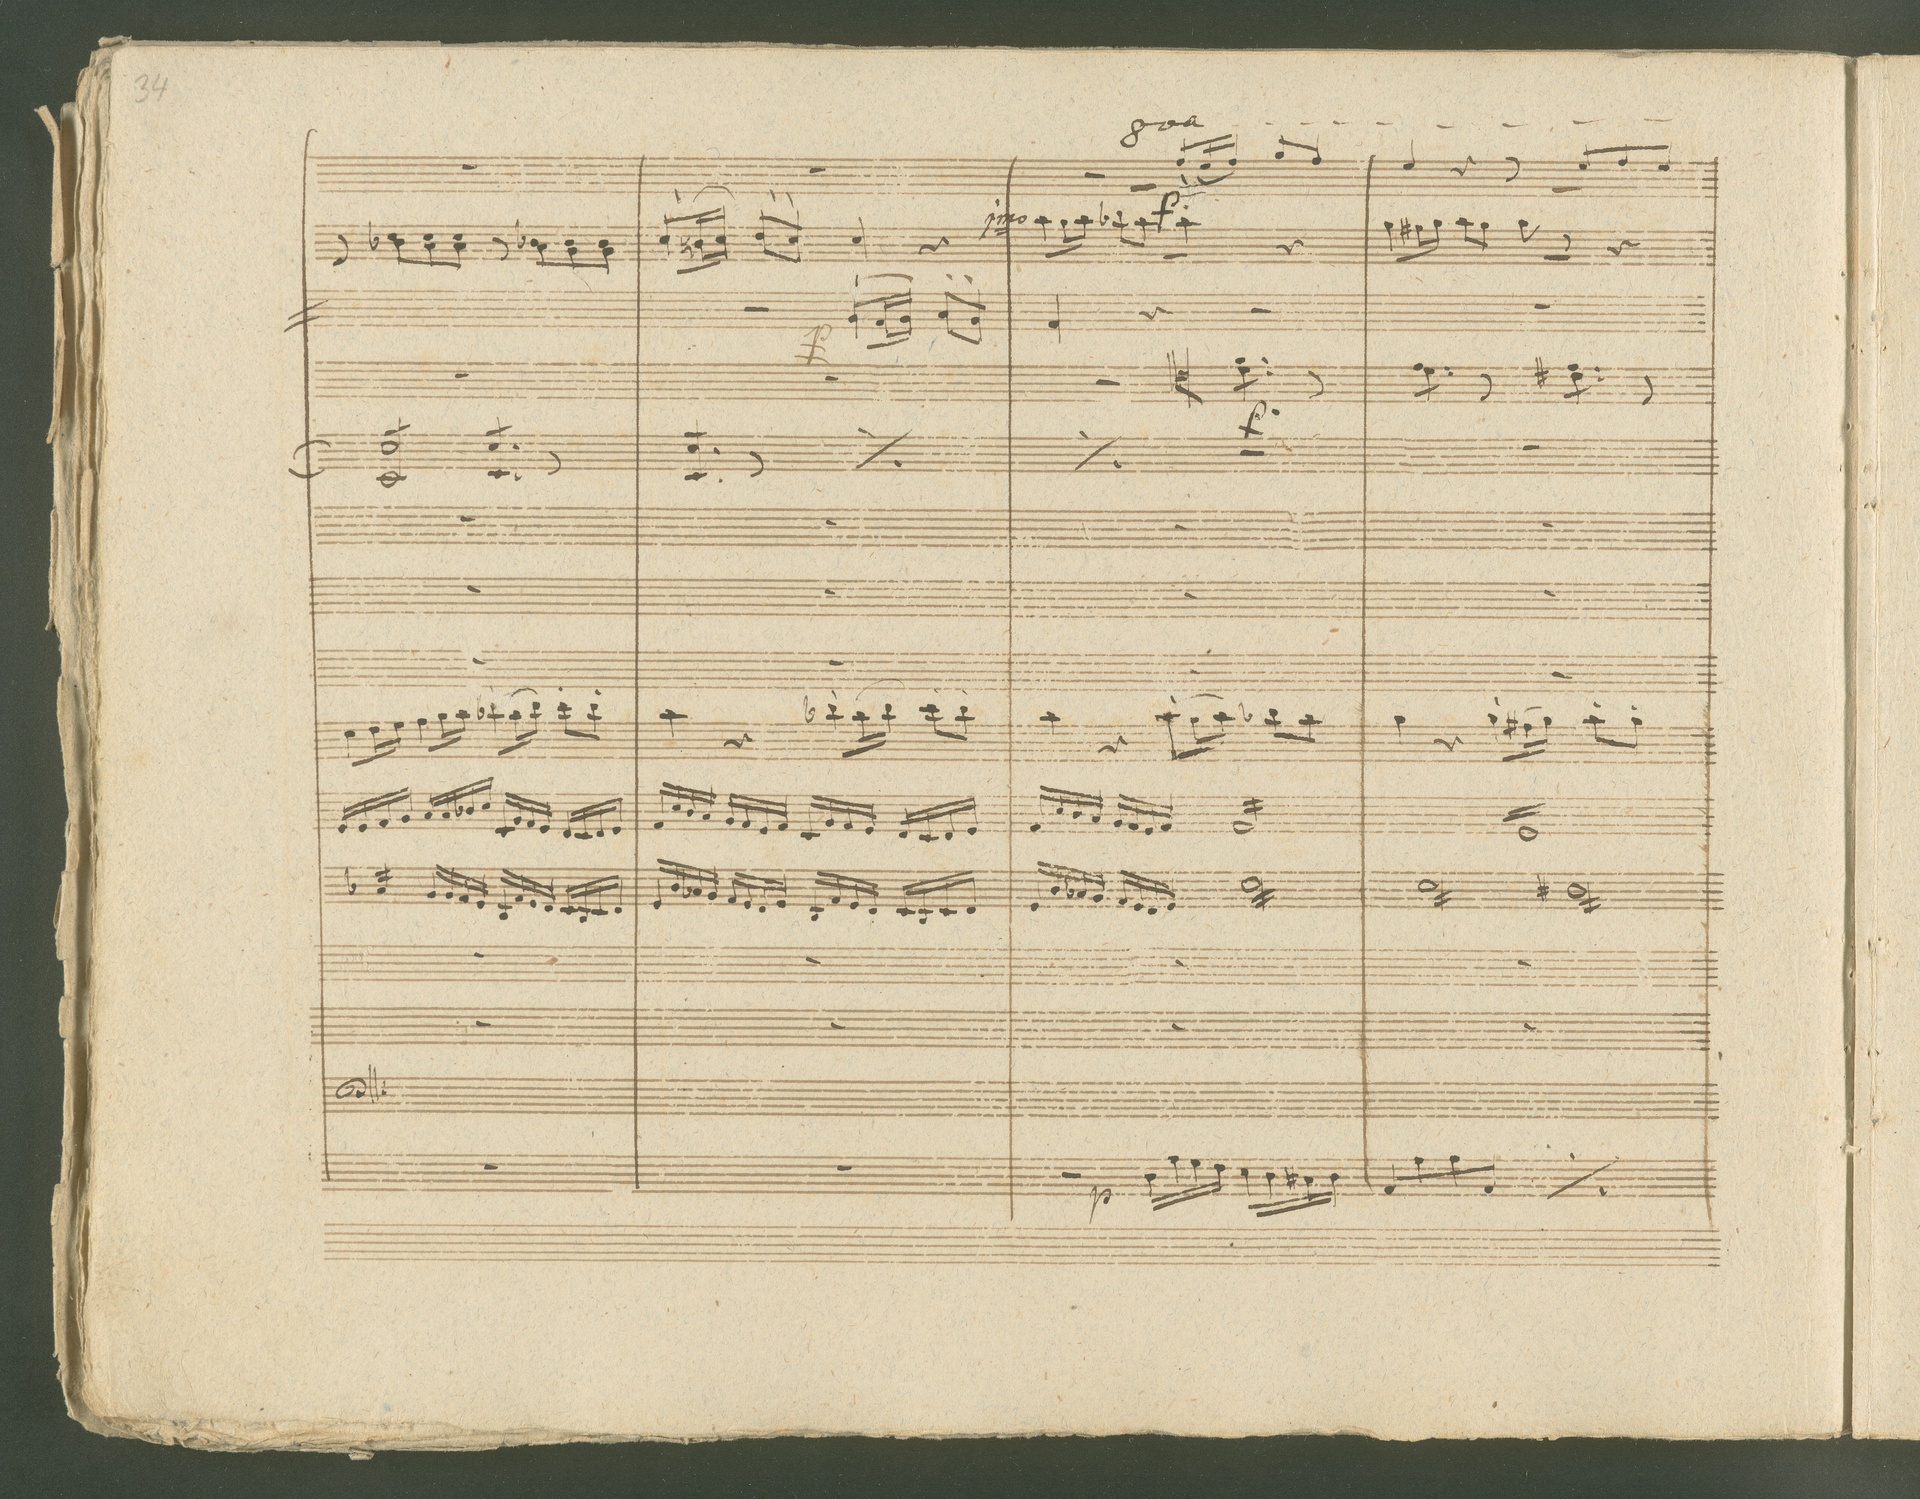 34
8va
imo
f
f
f.
Coll:
p